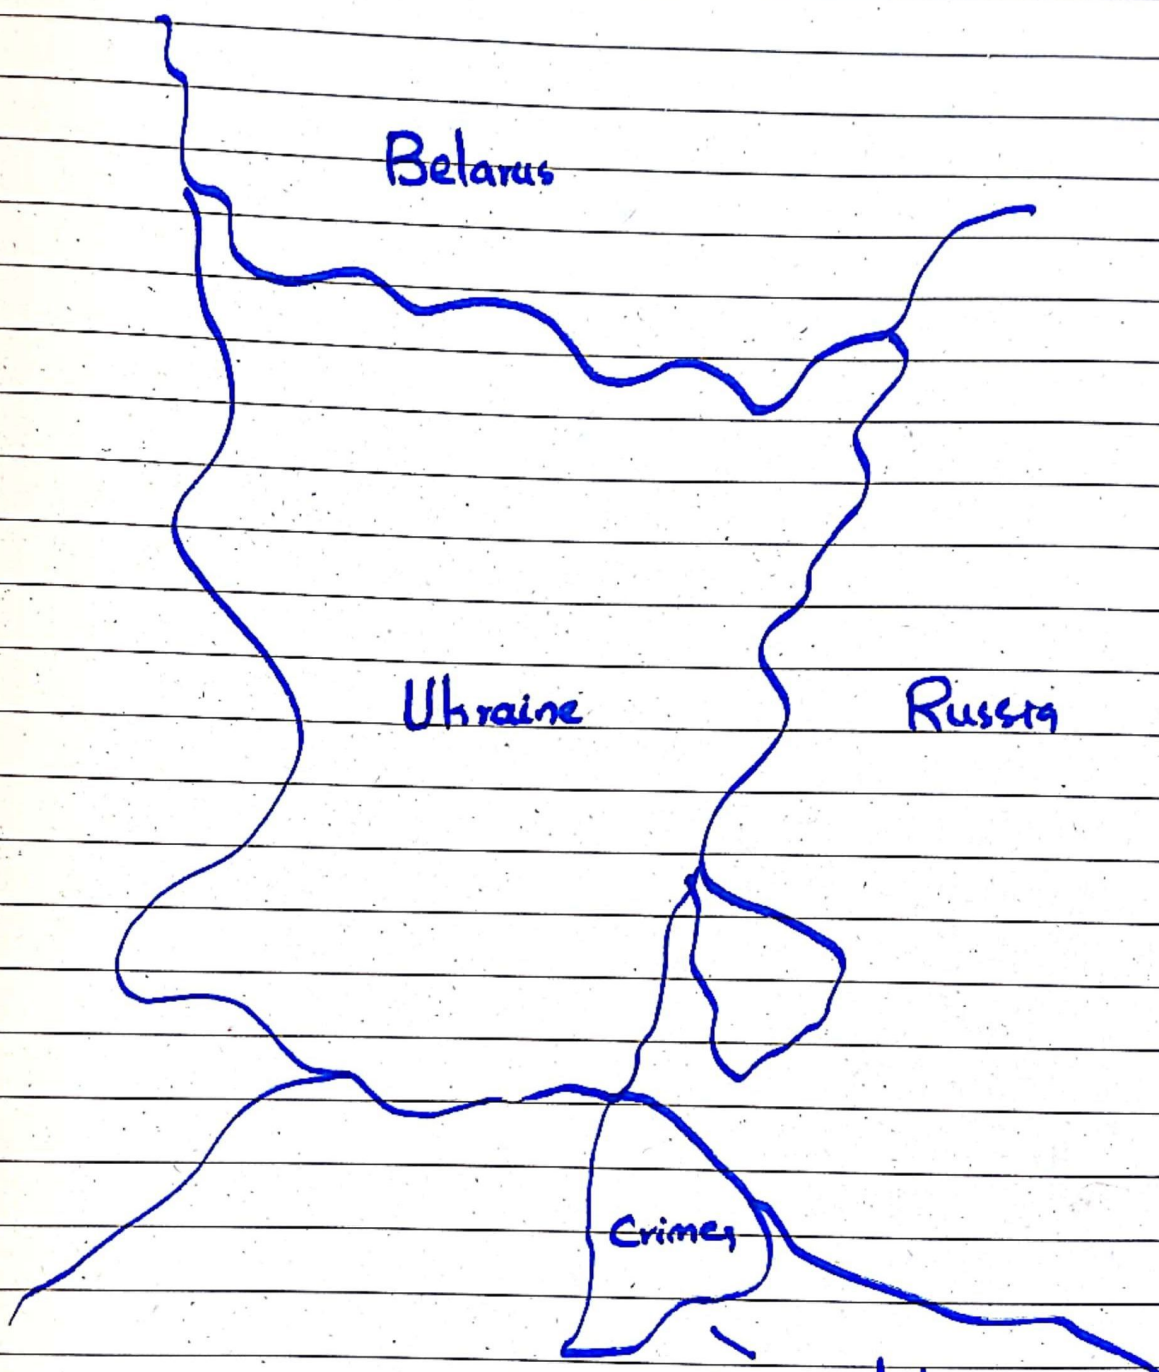 Belarus
Ukraine
Russia
Crimea